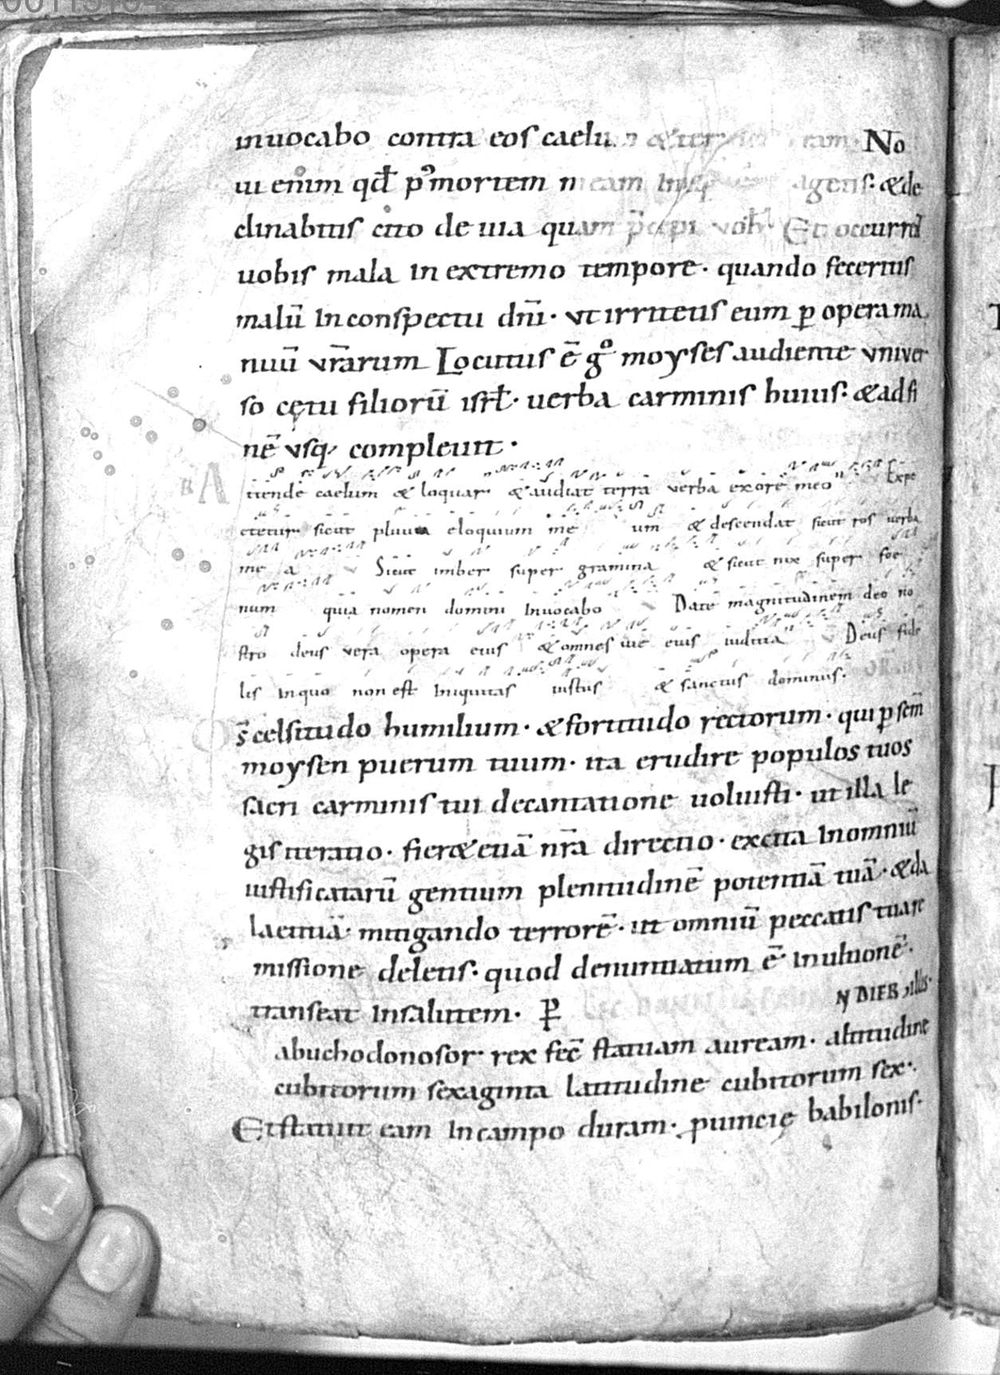 inuocabo contra eos caelum & terram. No
ui enim qđ p'mortem meam iniq agetis. & de
clinabitis cito de uia quam p̄cepi vob̄. Et occurrent
uobis mala in extremo tempore. quando feceritis
malū in conspectu dn̄i. vt irritetis eum p opera ma
nuū vr̄arum Locutus ē gº moyses audiente vniver
so cętu filiorū isrł. uerba carminis huius. & ad fi
nē vsq; compleuit.
Attende caelum & loquar & audiat terra verba ex ore meo Expe
ctetur sicut pluuia eloquium me um & descendat sicut ros verba
me a Sicut imber super gramina & sicut nix super foe
num quia nomen domini Inuocabo Date magnitudinem deo no
stro deus vera opera eius & omnes uie eius iuditia Deus fide
lis in quo non est Iniquitas iustus & sanctus dominus.
Ds̄ celsitudo humilium. & fortitudo rectorum. qui p scm̄
moysen puerum tuum. ita erudire populos tuos
sacri carminis tui decantatione uoluisti. ut illa le
gis iteratio. fier& etiā nr̄a directio. excita In omniū
iustificatarū gentium plenitudinē potentiā tuā. & da
laetitiā. mitigando terrorē. ut omniū peccatis tua re
missione deletis. quod denuntiatum ē in ultionē.
transeat In salutem. P IN DIEB; illis.
Nabuchodonosor rex fec̄ statuam auream. altitudine
cubitorum sexaginta latitudine cubitorum sex.
Et statuit eam In campo duram. puincię babilonis.